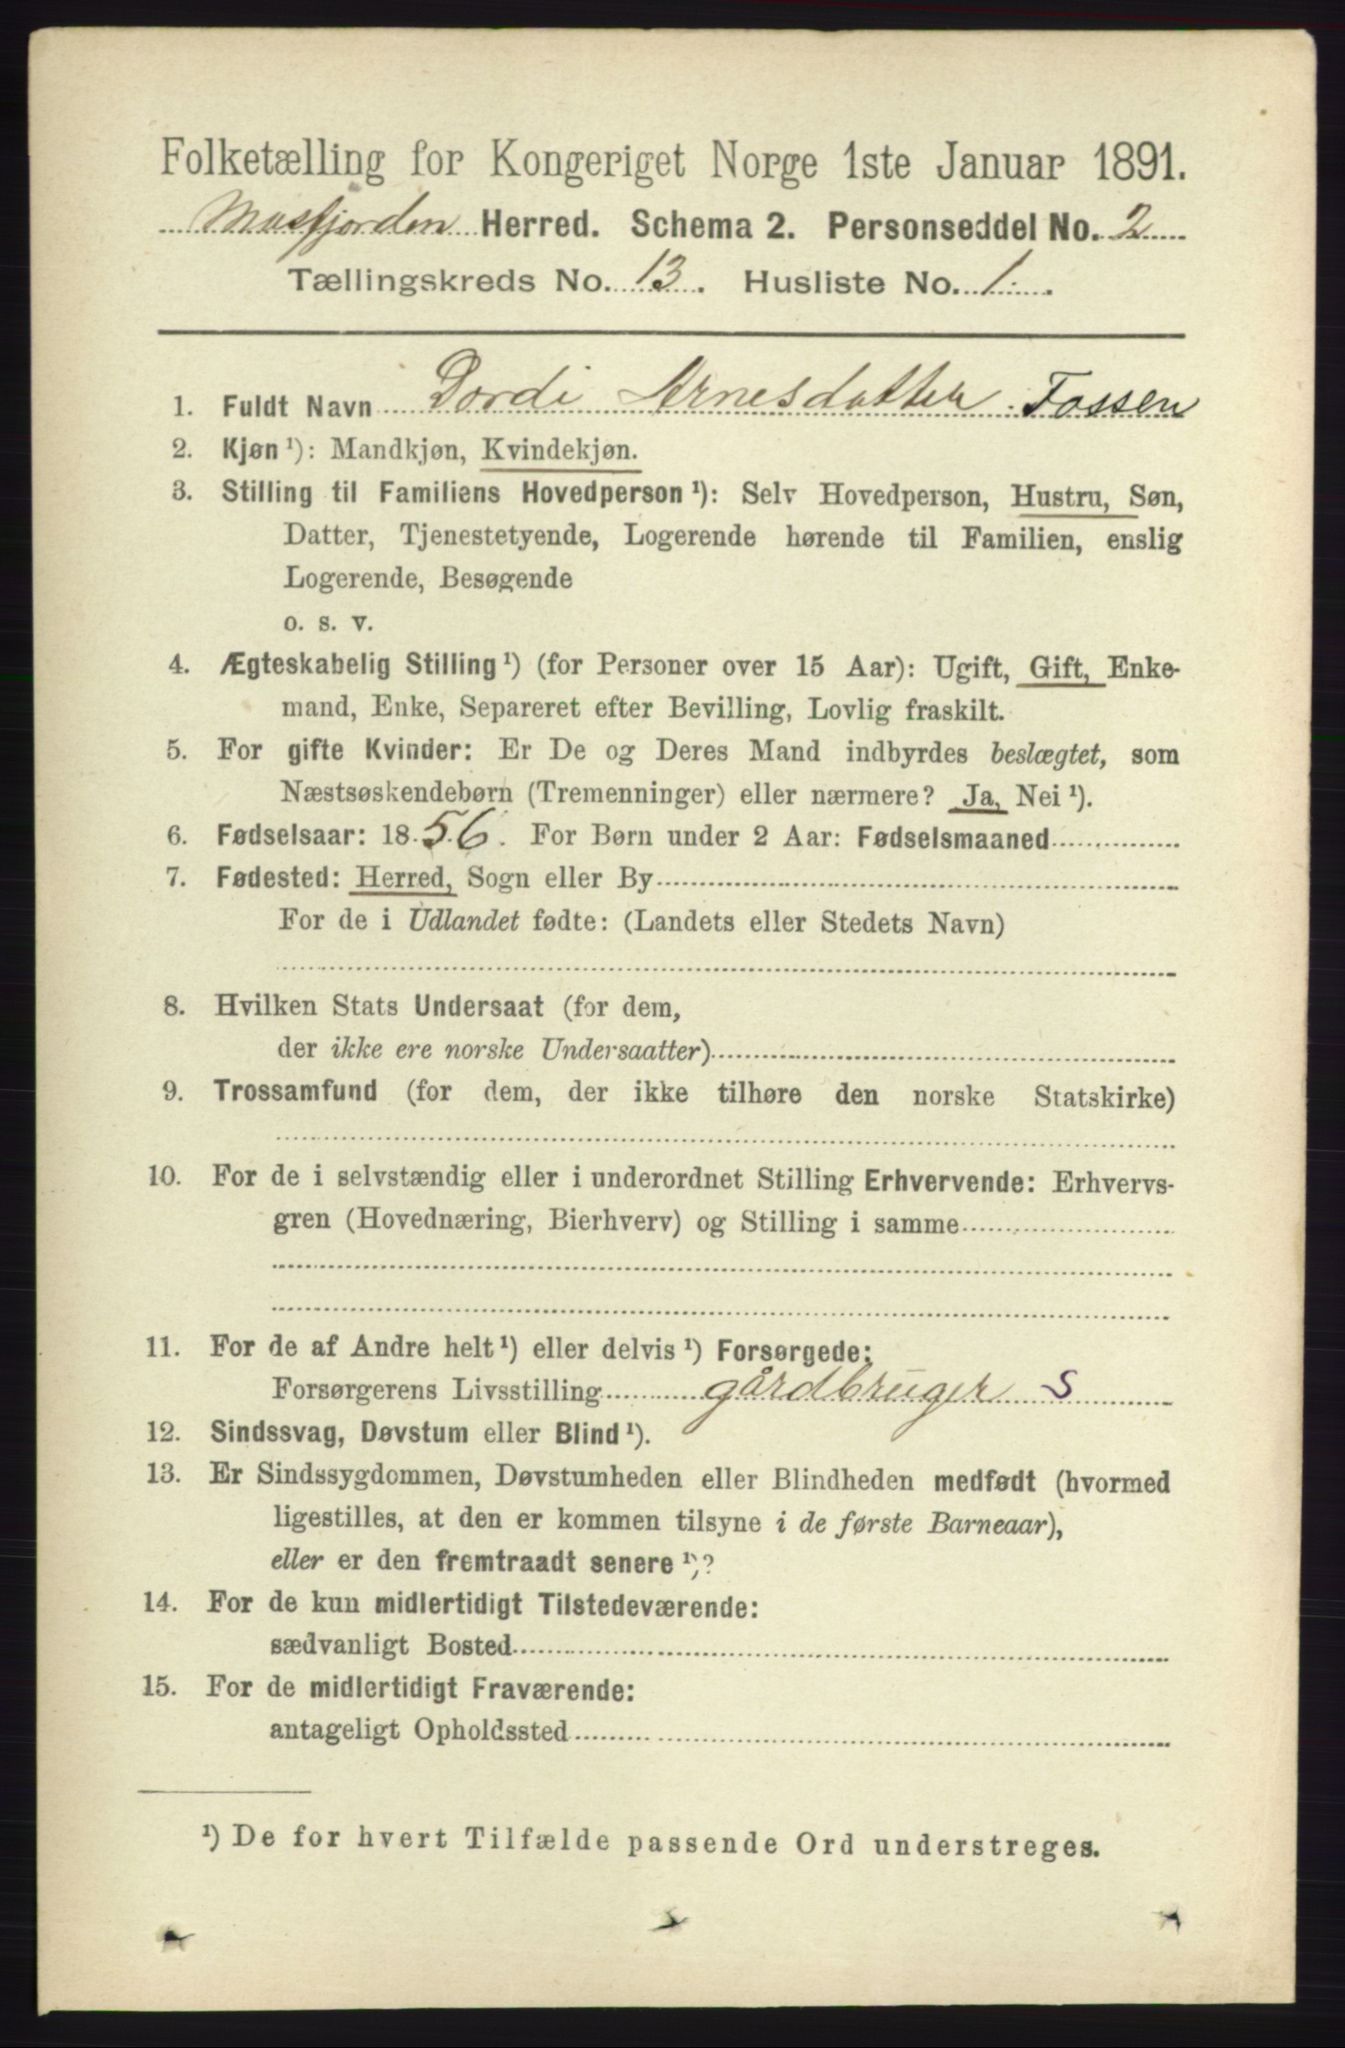 Folketælling for Kongeriget Norge 1ste Januar 1891.
Masfjorden Herred. Schema 2. Personseddel No. 2
Tællingskreds No. 13. Husliste No. 1.
1. Fuldt Navn Dordi Arnesdatter Fossen
2. Kjøn ¹): Mandkjøn, Kvindekjøn.
3. Stilling til Familiens Hovedperson ¹): Selv Hovedperson, Hustru, Søn,
Datter, Tjenestetyende, Logerende hørende til Familien, enslig
Logerende, Besøgende
o. s. v.
4. Ægteskabelig Stilling ¹) (for Personer over 15 Aar): Ugift, Gift, Enke-
mand, Enke, Separeret efter Bevilling, Lovlig fraskilt.
5. For gifte Kvinder: Er De og Deres Mand indbyrdes beslægtet, som
Næstsøskendebørn (Tremenninger) eller nærmere? Ja, Nei ¹).
6. Fødselsaar: 1856. For Børn under 2 Aar: Fødselsmaaned
7. Fødested: Herred, Sogn eller By
For de i Udlandet fødte: (Landets eller Stedets Navn)
8. Hvilken Stats Undersaat (for dem,
der ikke ere norske Undersaatter)
9. Trossamfund (for dem, der ikke tilhøre den norske Statskirke)
10. For de i selvstændig eller i underordnet Stilling Erhvervende: Erhvervs-
gren (Hovednæring, Bierhverv) og Stilling i samme
11. For de af Andre helt ¹) eller delvis ¹) Forsørgede:
Forsørgerens Livsstilling gårdbruger S
12. Sindssvag, Døvstum eller Blind ¹).
13. Er Sindssygdommen, Døvstumheden eller Blindheden medfødt (hvormed
ligestilles, at den er kommen tilsyne i de første Barneaar),
eller er den fremtraadt senere ¹)?
14. For de kun midlertidigt Tilstedeværende:
sædvanligt Bosted
15. For de midlertidigt Fraværende:
antageligt Opholdssted
¹) De for hvert Tilfælde passende Ord understreges.